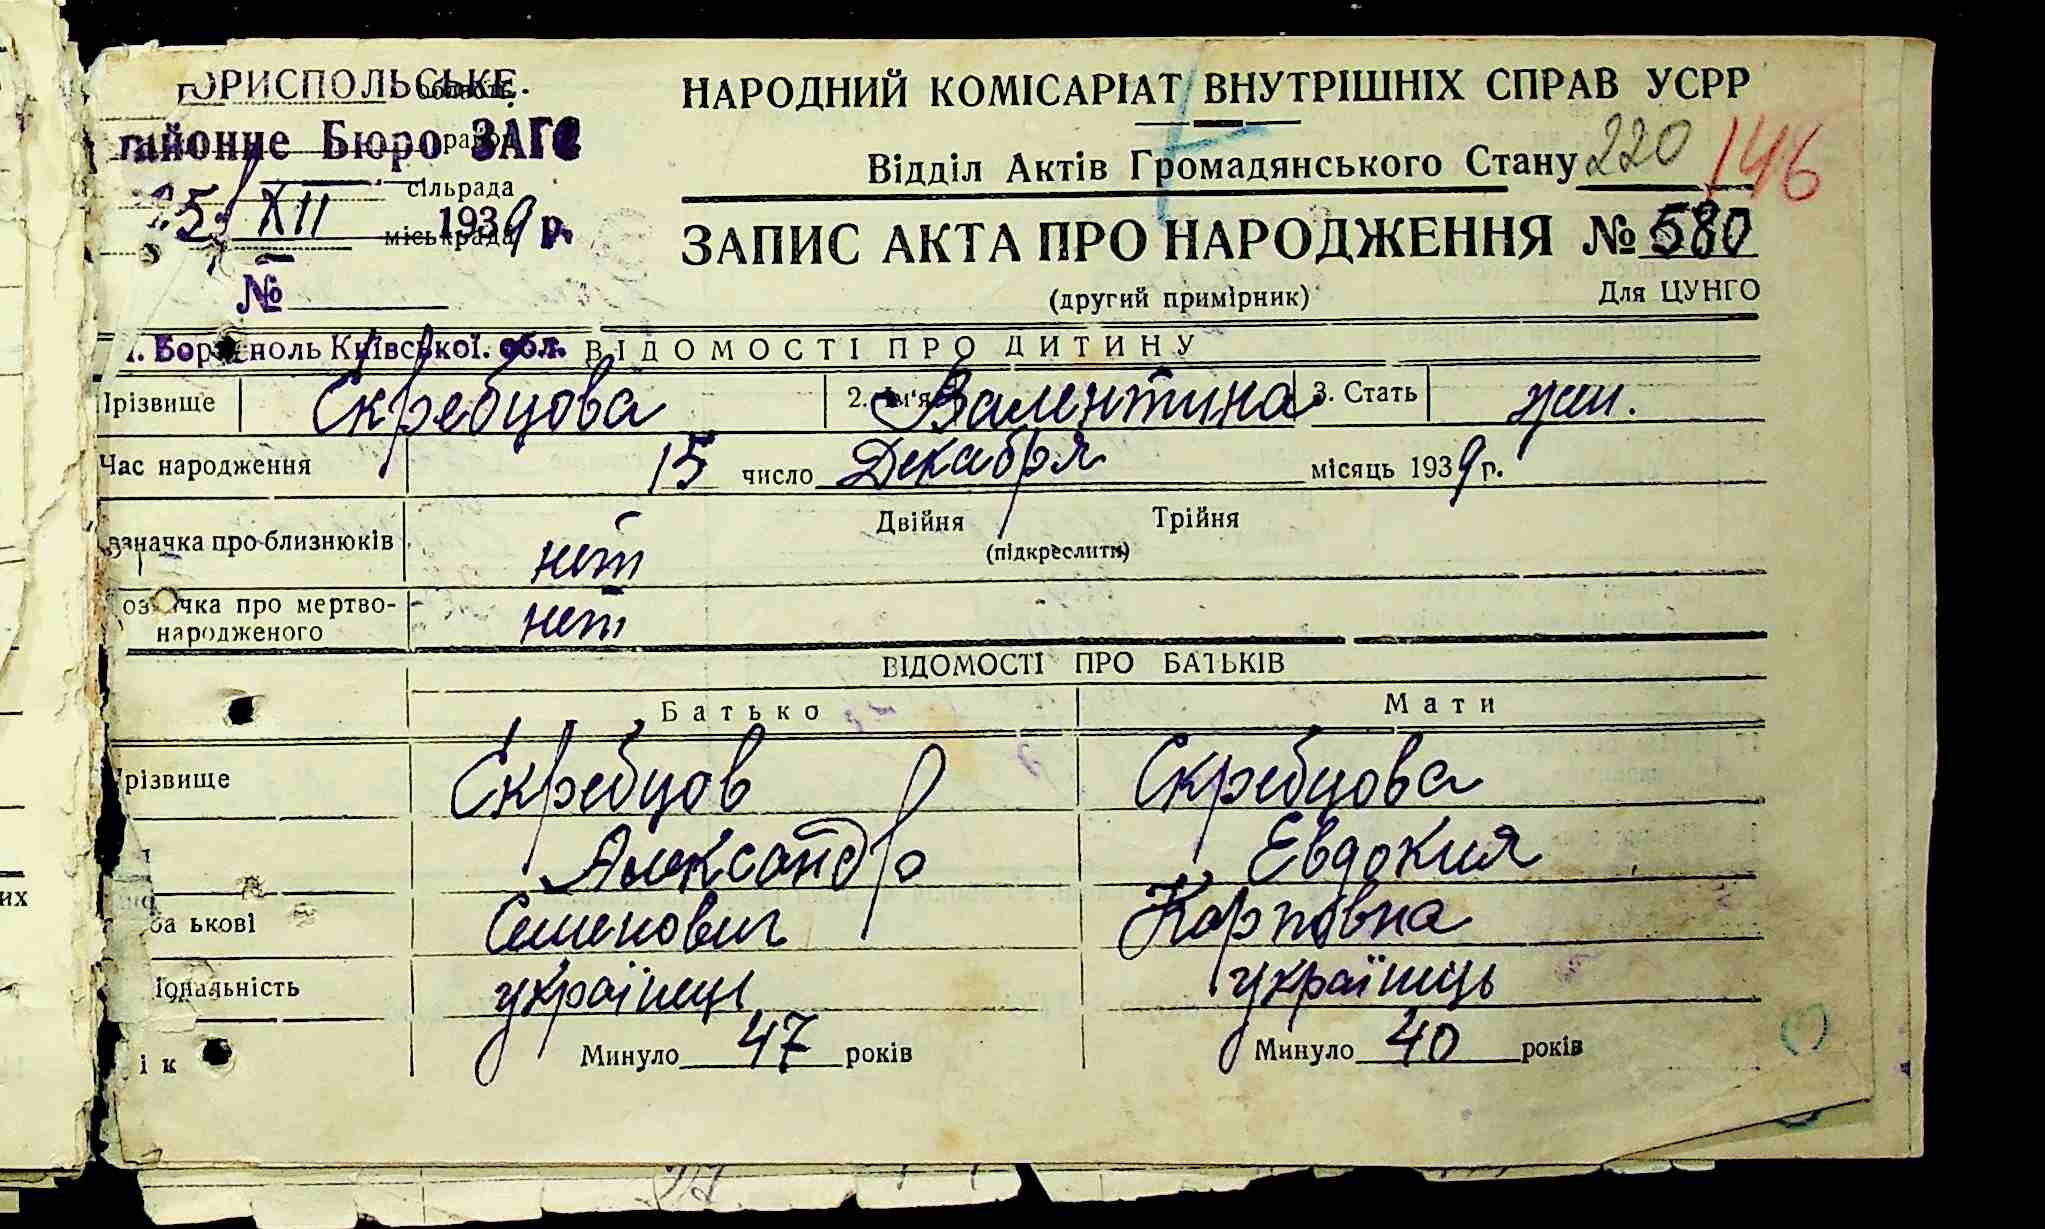 БОРИСПОЛЬСЬКЕ
область
районне Бюро ЗАГС
район
сільрада
25/XII 1939 р.
міськрада
№
м. Бориспіль Київської обл.
НАРОДНИЙ КОМІСАРІАТ ВНУТРІШНІХ СПРАВ УСРР
Відділ Актів Громадянського Стану 220 146
ЗАПИС АКТА ПРО НАРОДЖЕННЯ № 580
(другий примірник) Для ЦУНГО
ВІДОМОСТІ ПРО ДИТИНУ
Прізвище Скребцова 2. Ім'я Валентина 3. Стать жен.
Час народження 15 число Декабря місяць 1939 р.
Двійня Трійня
Зазначка про близнюків нет (підкреслити)
Зазначка про мертво-
народженого нет
ВІДОМОСТІ ПРО БАТЬКІВ
Батько Мати
Прізвище Скребцов Скребцова
Александр Евдокия
по батькові Семенович Карповна
Національність українец українець
Вік Минуло 47 років Минуло 40 років
их